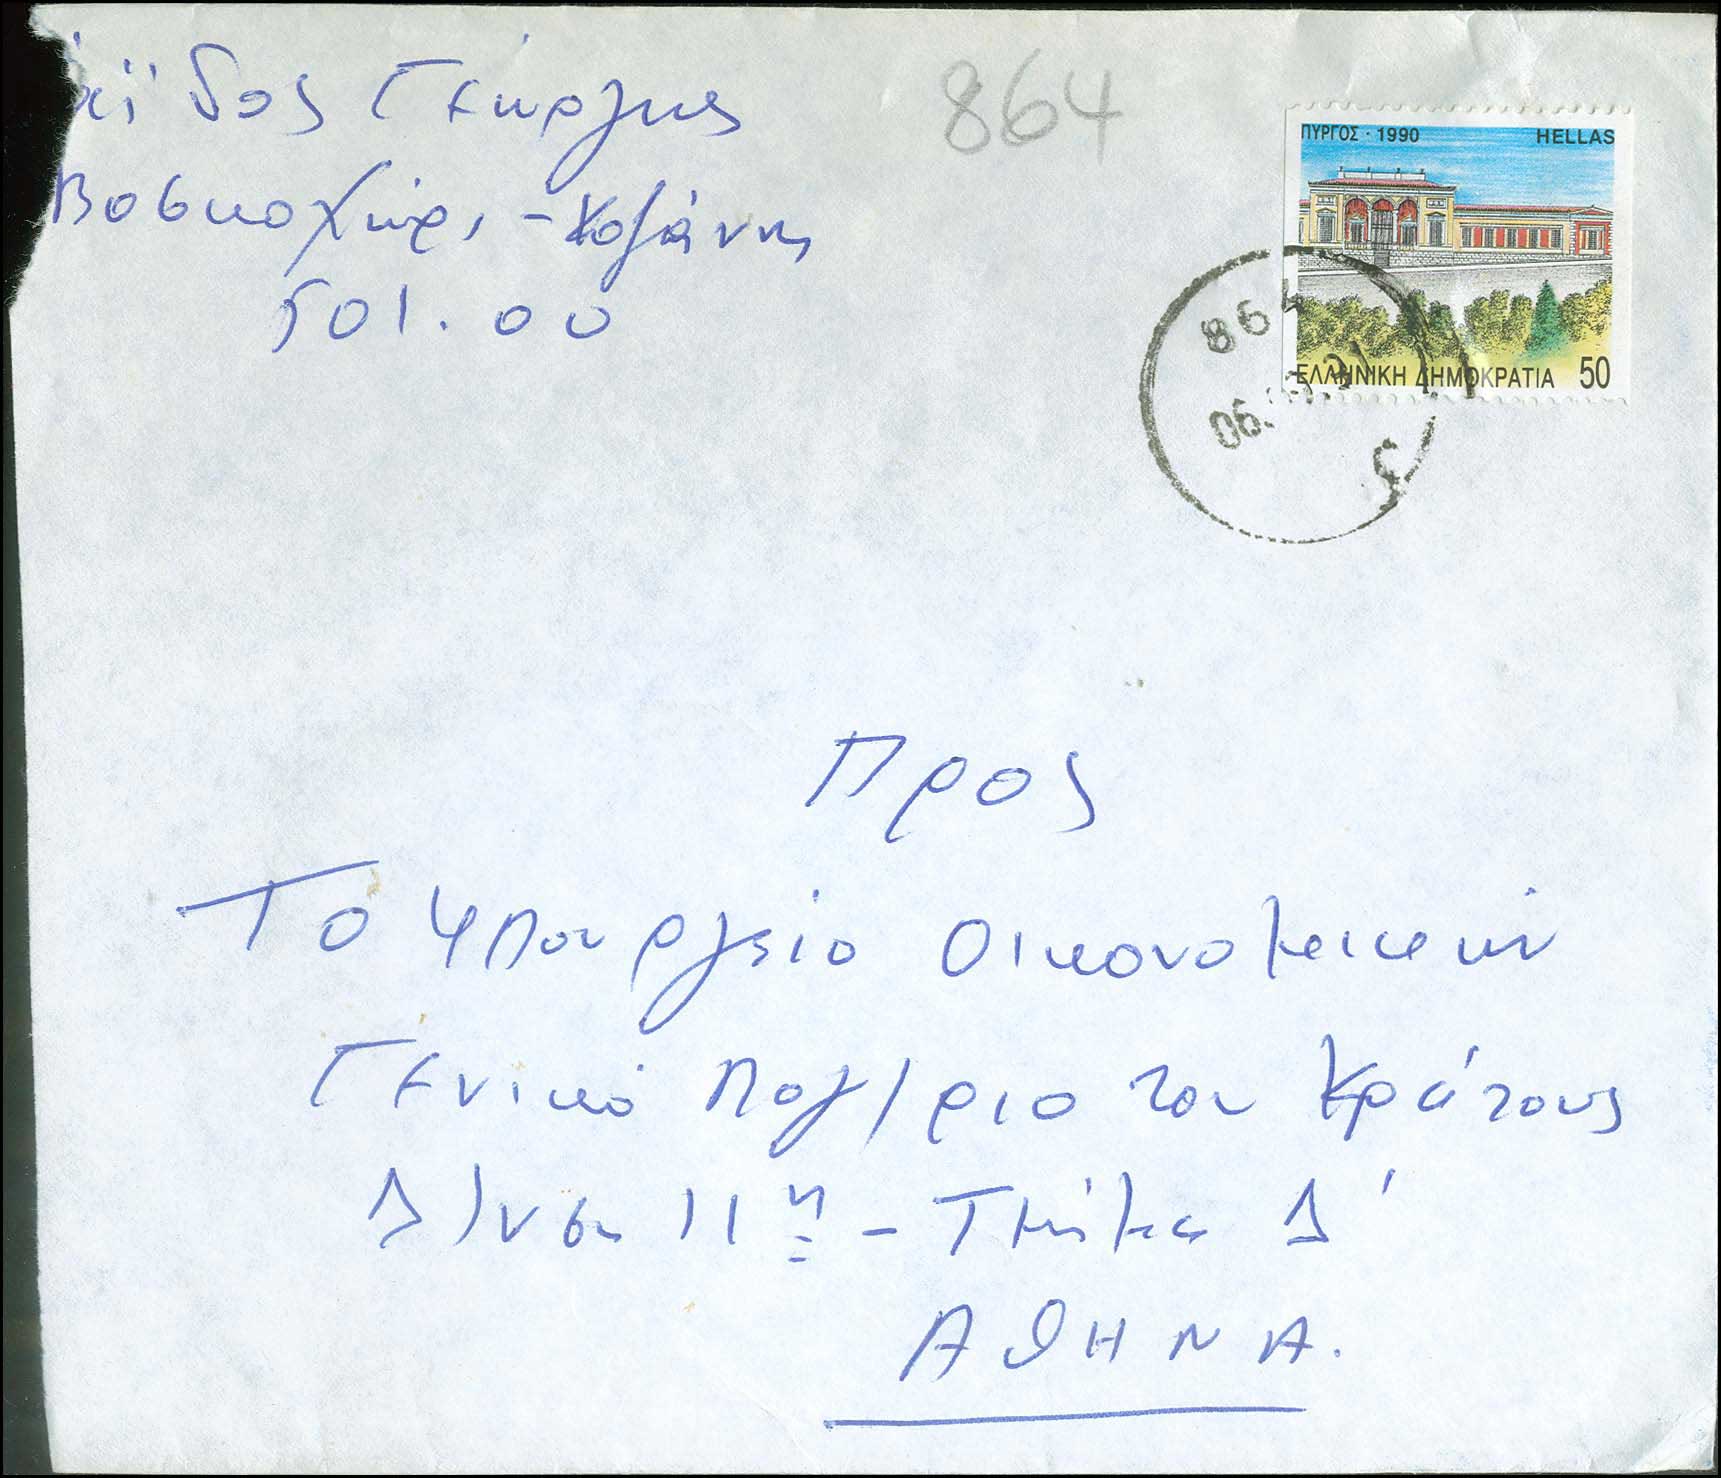 αΐδος Γεώργιος
Βοσκοχώρι - Κοζάνης
501.00
864
ΠΥΡΓΟΣ · 1990 HELLAS
ΕΛΛΗΝΙΚΗ ΔΗΜΟΚΡΑΤΙΑ 50
864
06.
Προς
Το Υπουργείο Οικονομικών
Γενικό Λογ/ριο του Κράτους
Δ/νση 11η - Τμήμα Δ'
ΑΘΗΝΑ.